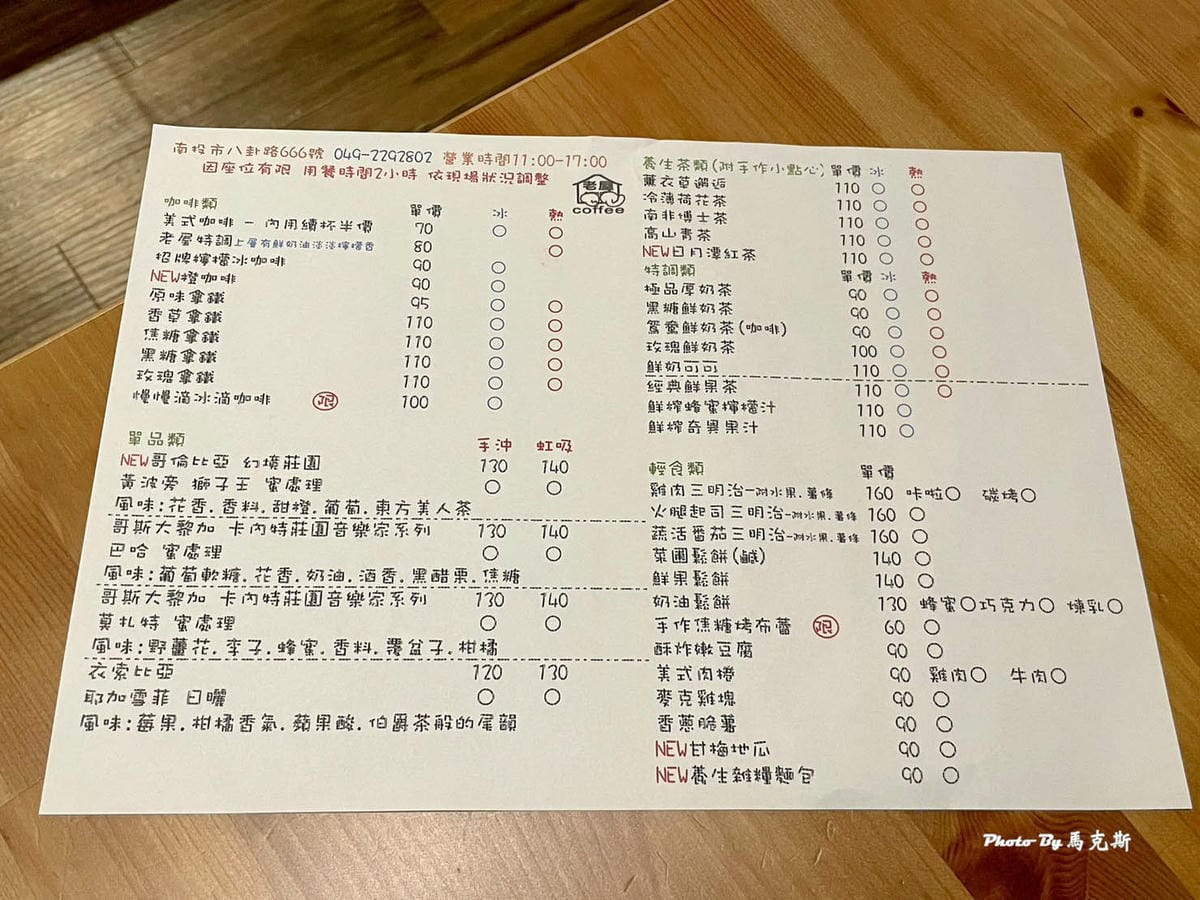 南投市八卦路666號 049-2292802 營業時間11:00-17:00
因座位有限 用餐時間2小時 依現場狀況調整
老屋
coffee
咖啡類 單價 冰 熱
美式咖啡 - 內用續杯半價 70 ○ ○
老屋特調上層有鮮奶油淡淡檸檬香 80 ○
招牌檸檬冰咖啡 90 ○
NEW橙咖啡 90 ○
原味拿鐵 95 ○ ○
香草拿鐵 110 ○ ○
焦糖拿鐵 110 ○ ○
黑糖拿鐵 110 ○ ○
玫瑰拿鐵 110 ○ ○
慢慢滴冰滴咖啡 限 100 ○
單品類 手沖 虹吸
NEW哥倫比亞 幻境莊園 130 140
黃波旁 獅子王 蜜處理 ○ ○
風味:花香.香料.甜橙.葡萄.東方美人茶
哥斯大黎加 卡內特莊園音樂家系列 130 140
巴哈 蜜處理 ○ ○
風味:葡萄軟糖.花香.奶油.酒香.黑醋栗.焦糖
哥斯大黎加 卡內特莊園音樂家系列 130 140
莫札特 蜜處理 ○ ○
風味:野薑花.李子.蜂蜜.香料.覆盆子.柑橘
衣索比亞 120 130
耶加雪菲 日曬 ○ ○
風味:莓果.柑橘香氣.蘋果酸.伯爵茶般的尾韻
養生茶類(附手作小點心) 單價 冰 熱
薰衣草邂逅 110 ○ ○
冷薄荷花茶 110 ○ ○
南非博士茶 110 ○ ○
高山青茶 110 ○ ○
NEW日月潭紅茶 110 ○ ○
特調類 單價 冰 熱
極品厚奶茶 90 ○ ○
黑糖鮮奶茶 90 ○ ○
鴛鴦鮮奶茶(咖啡) 90 ○ ○
玫瑰鮮奶茶 100 ○ ○
鮮奶可可 110 ○ ○
經典鮮果茶 110 ○ ○
鮮榨蜂蜜檸檬汁 110 ○
鮮榨奇異果汁 110 ○
輕食類 單價
雞肉三明治-附水果.薯條 160 咔啦○ 碳烤○
火腿起司三明治-附水果.薯條 160 ○
蔬活番茄三明治-附水果.薯條 160 ○
菜圃鬆餅(鹹) 140 ○
鮮果鬆餅 140 ○
奶油鬆餅 130 蜂蜜○巧克力○ 煉乳○
手作焦糖烤布蕾 限 60 ○
酥炸嫩豆腐 90 ○
美式肉捲 90 雞肉○ 牛肉○
麥克雞塊 90 ○
香蔥脆薯 90 ○
NEW甘梅地瓜 90 ○
NEW養生雜糧麵包 90 ○
Photo By 馬克斯